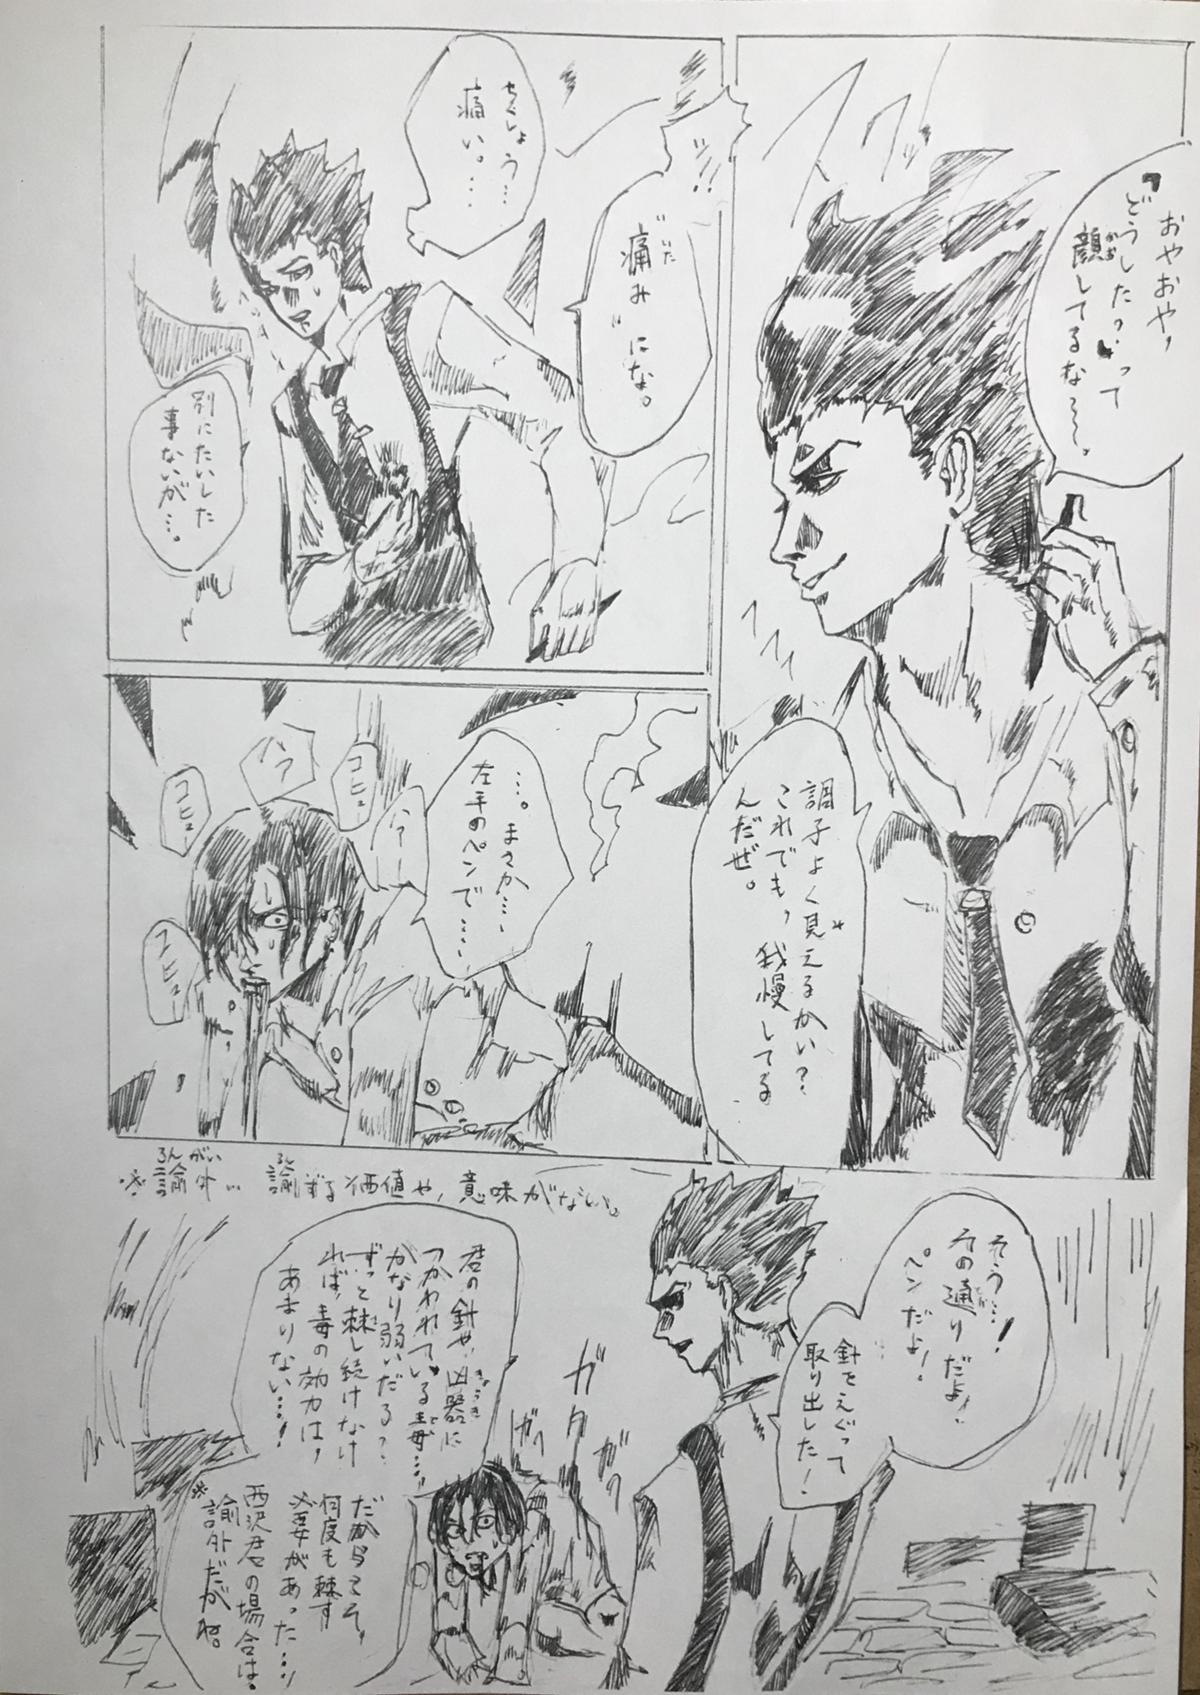 おやおや、
『どうしたっ』って
顔してるなー〜。
かお
調子よく見えるかい？
これでも、我慢してる
んだぜ。
"痛み"にな。
いた
ちくしょう…
痛い。…
別にたいした
事ないが…。
…。まさか…、
左手のペンで…、
コヒュー
ハァ
コヒュー
ハァー
コヒュー
※論外… 論ずる価値や、意味がない。
ろんがい
ろん
そう…！
その通りだよ！
ペンだよ！
とお
針をえぐって
取り出した！
ガタ
ガク
ガク
君の針や、凶器に
つかわれている毒…！
かなり弱いだろ？
ずっと刺し続けなけ
れば、毒の効力は、
あまりない…！
きょうき
どく
さ
だからこそ、
何度も刺す
必要があった…！
西沢君の場合は。
※論外だがね。